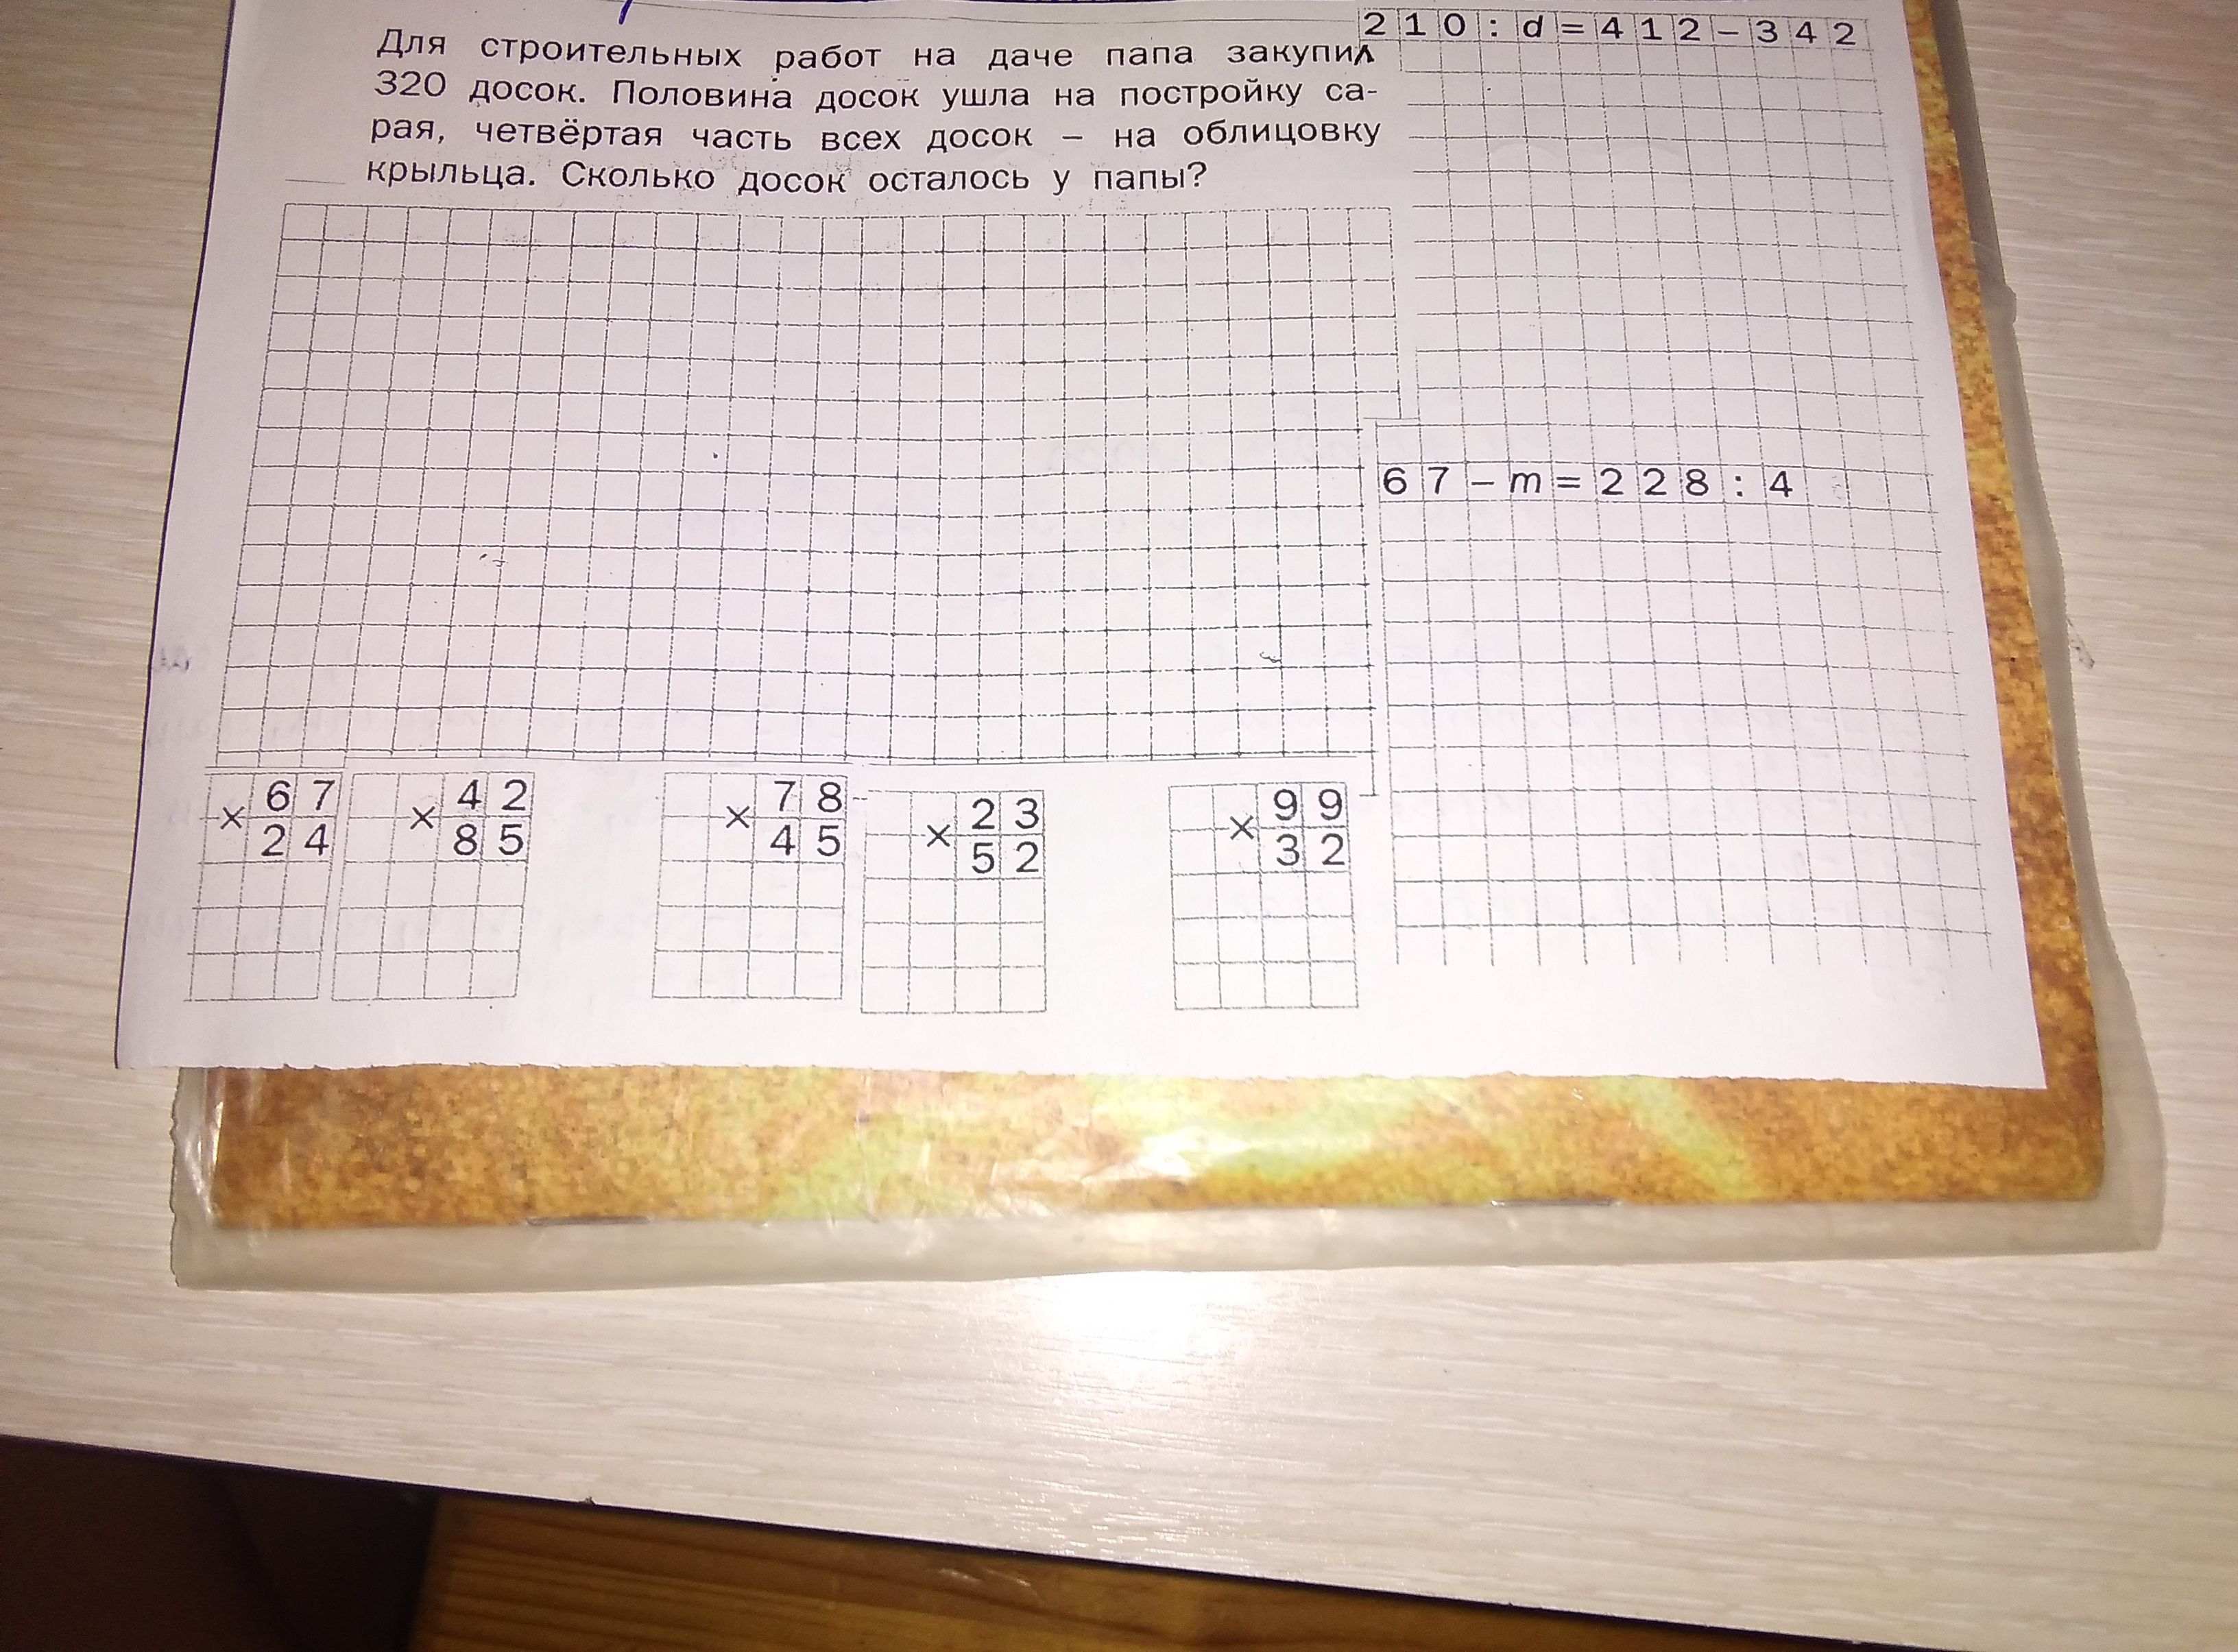 Для строительных работ на даче папа закупил
320 досок. Половина досок ушла на постройку са-
рая, четвёртая часть всех досок – на облицовку
крыльца. Сколько досок осталось у папы?
210:d=412–342
67–m=228:4
× 67
24
× 42
85
× 78
45
× 23
52
× 99
32